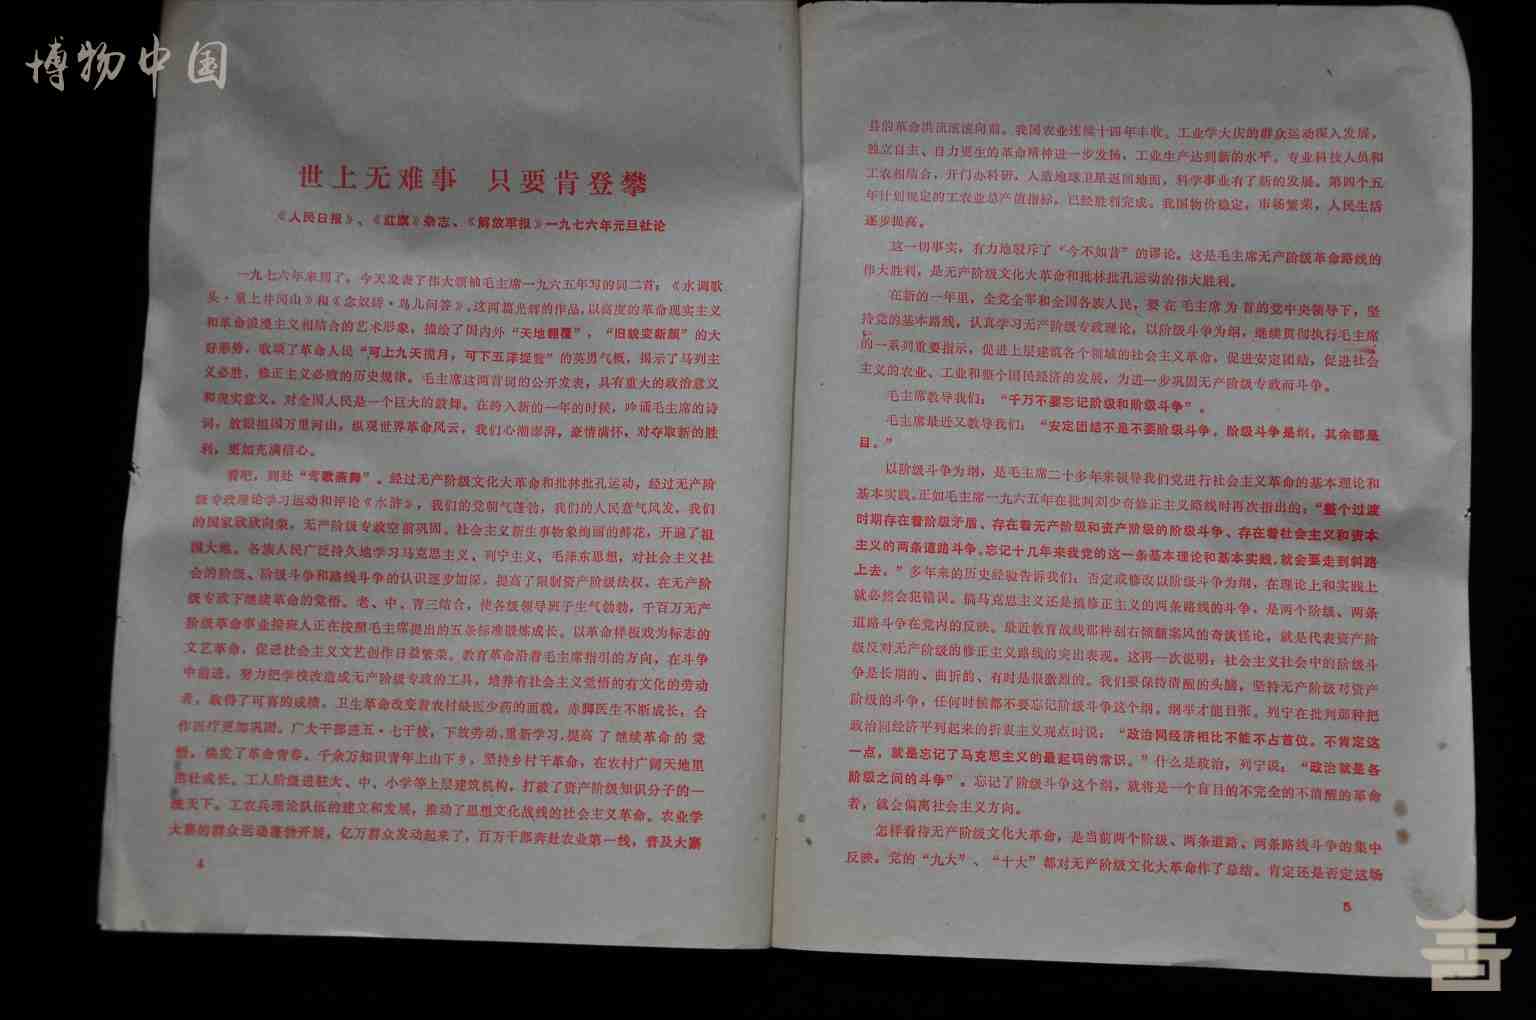 博物中国
世上无难事 只要肯登攀
《人民日报》、《红旗》杂志、《解放军报》一九七六年元旦社论
一九七六年来到了。今天发表了伟大领袖毛主席一九六五年写的词二首：《水调歌
头·重上井冈山》和《念奴娇·鸟儿问答》。这两篇光辉的作品，以高度的革命现实主义
和革命浪漫主义相结合的艺术形象，描绘了国内外“天地翻覆”，“旧貌变新颜”的大
好形势，歌颂了革命人民“可上九天揽月，可下五洋捉鳖”的英勇气概，揭示了马列主
义必胜、修正主义必败的历史规律。毛主席这两首词的公开发表，具有重大的政治意义
和现实意义，对全国人民是一个巨大的鼓舞。在跨入新的一年的时候，吟诵毛主席的诗
词，放眼祖国万里河山，纵观世界革命风云，我们心潮澎湃，豪情满怀，对夺取新的胜
利，更加充满信心。
看吧，到处“莺歌燕舞”。经过无产阶级文化大革命和批林批孔运动，经过无产阶
级专政理论学习运动和评论《水浒》，我们的党朝气蓬勃，我们的人民意气风发，我们
的国家欣欣向荣，无产阶级专政空前巩固。社会主义新生事物象绚丽的鲜花，开遍了祖
国大地。各族人民广泛持久地学习马克思主义、列宁主义、毛泽东思想，对社会主义社
会的阶级、阶级斗争和路线斗争的认识逐步加深，提高了限制资产阶级法权、在无产阶
级专政下继续革命的觉悟。老、中、青三结合，使各级领导班子生气勃勃，千百万无产
阶级革命事业接班人正在按照毛主席提出的五条标准锻炼成长。以革命样板戏为标志的
文艺革命，促进社会主义文艺创作日益繁荣。教育革命沿着毛主席指引的方向，在斗争
中前进，努力把学校改造成无产阶级专政的工具，培养有社会主义觉悟的有文化的劳动
者，取得了可喜的成绩。卫生革命改变着农村缺医少药的面貌，赤脚医生不断成长，合
作医疗更加巩固。广大干部进五·七干校，下放劳动，重新学习，提高了继续革命的觉
悟，焕发了革命青春。千余万知识青年上山下乡，坚持乡村干革命，在农村广阔天地里
茁壮成长。工人阶级进驻大、中、小学等上层建筑机构，打破了资产阶级知识分子的一
统天下。工农兵理论队伍的建立和发展，推动了思想文化战线的社会主义革命。农业学
大寨的群众运动蓬勃开展，亿万群众发动起来了，百万干部奔赴农业第一线，普及大寨
4
县的革命洪流滚滚向前。我国农业连续十四年丰收。工业学大庆的群众运动深入发展，
独立自主、自力更生的革命精神进一步发扬，工业生产达到新的水平。专业科技人员和
工农相结合，开门办科研，人造地球卫星返回地面，科学事业有了新的发展。第四个五
年计划规定的工农业总产值指标，已经胜利完成。我国物价稳定，市场繁荣，人民生活
逐步提高。
这一切事实，有力地驳斥了“今不如昔”的谬论。这是毛主席无产阶级革命路线的
伟大胜利，是无产阶级文化大革命和批林批孔运动的伟大胜利。
在新的一年里，全党全军和全国各族人民，要在毛主席为首的党中央领导下，坚
持党的基本路线，认真学习无产阶级专政理论，以阶级斗争为纲，继续贯彻执行毛主席
的一系列重要指示，促进上层建筑各个领域的社会主义革命，促进安定团结，促进社会
主义的农业、工业和整个国民经济的发展，为进一步巩固无产阶级专政而斗争。
毛主席教导我们：“千万不要忘记阶级和阶级斗争”。
毛主席最近又教导我们：“安定团结不是不要阶级斗争，阶级斗争是纲，其余都是
目。”
以阶级斗争为纲，是毛主席二十多年来领导我们党进行社会主义革命的基本理论和
基本实践。正如毛主席一九六五年在批判刘少奇修正主义路线时再次指出的：“整个过渡
时期存在着阶级矛盾、存在着无产阶级和资产阶级的阶级斗争、存在着社会主义和资本
主义的两条道路斗争。忘记十几年来我党的这一条基本理论和基本实践，就会要走到斜路
上去。”多年来的历史经验告诉我们：否定或修改以阶级斗争为纲，在理论上和实践上
就必然会犯错误。搞马克思主义还是搞修正主义的两条路线的斗争，是两个阶级、两条
道路斗争在党内的反映。最近教育战线那种刮右倾翻案风的奇谈怪论，就是代表资产阶
级反对无产阶级的修正主义路线的突出表现。这再一次说明：社会主义社会中的阶级斗
争是长期的、曲折的、有时是很激烈的。我们要保持清醒的头脑，坚持无产阶级对资产
阶级的斗争，任何时候都不要忘记阶级斗争这个纲。纲举才能目张。列宁在批判那种把
政治同经济平列起来的折衷主义观点时说：“政治同经济相比不能不占首位。不肯定这
一点，就是忘记了马克思主义的最起码的常识。”什么是政治，列宁说：“政治就是各
阶级之间的斗争”。忘记了阶级斗争这个纲，就将是一个盲目的不完全的不清醒的革命
者，就会偏离社会主义方向。
怎样看待无产阶级文化大革命，是当前两个阶级、两条道路、两条路线斗争的集中
反映。党的“九大”、“十大”都对无产阶级文化大革命作了总结。肯定还是否定这场
5